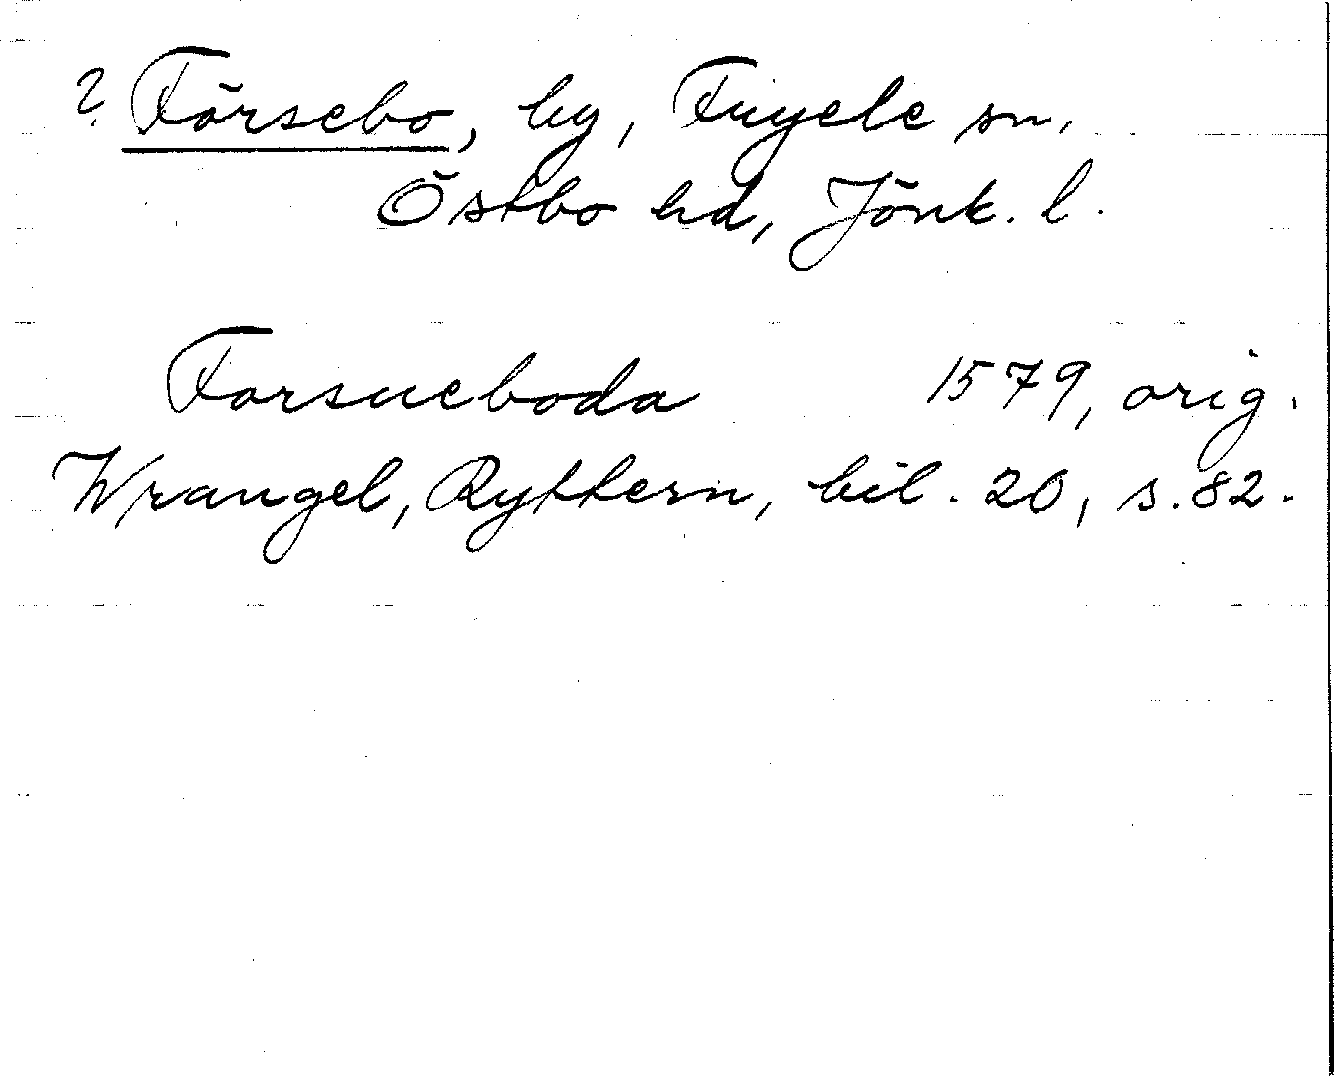 ? Försebo, by, Fryele sn,
Östbo hd, Jönk. l.
Forsueboda 1579, orig.
Wrangel, Ryttern, bil. 20, s. 82.